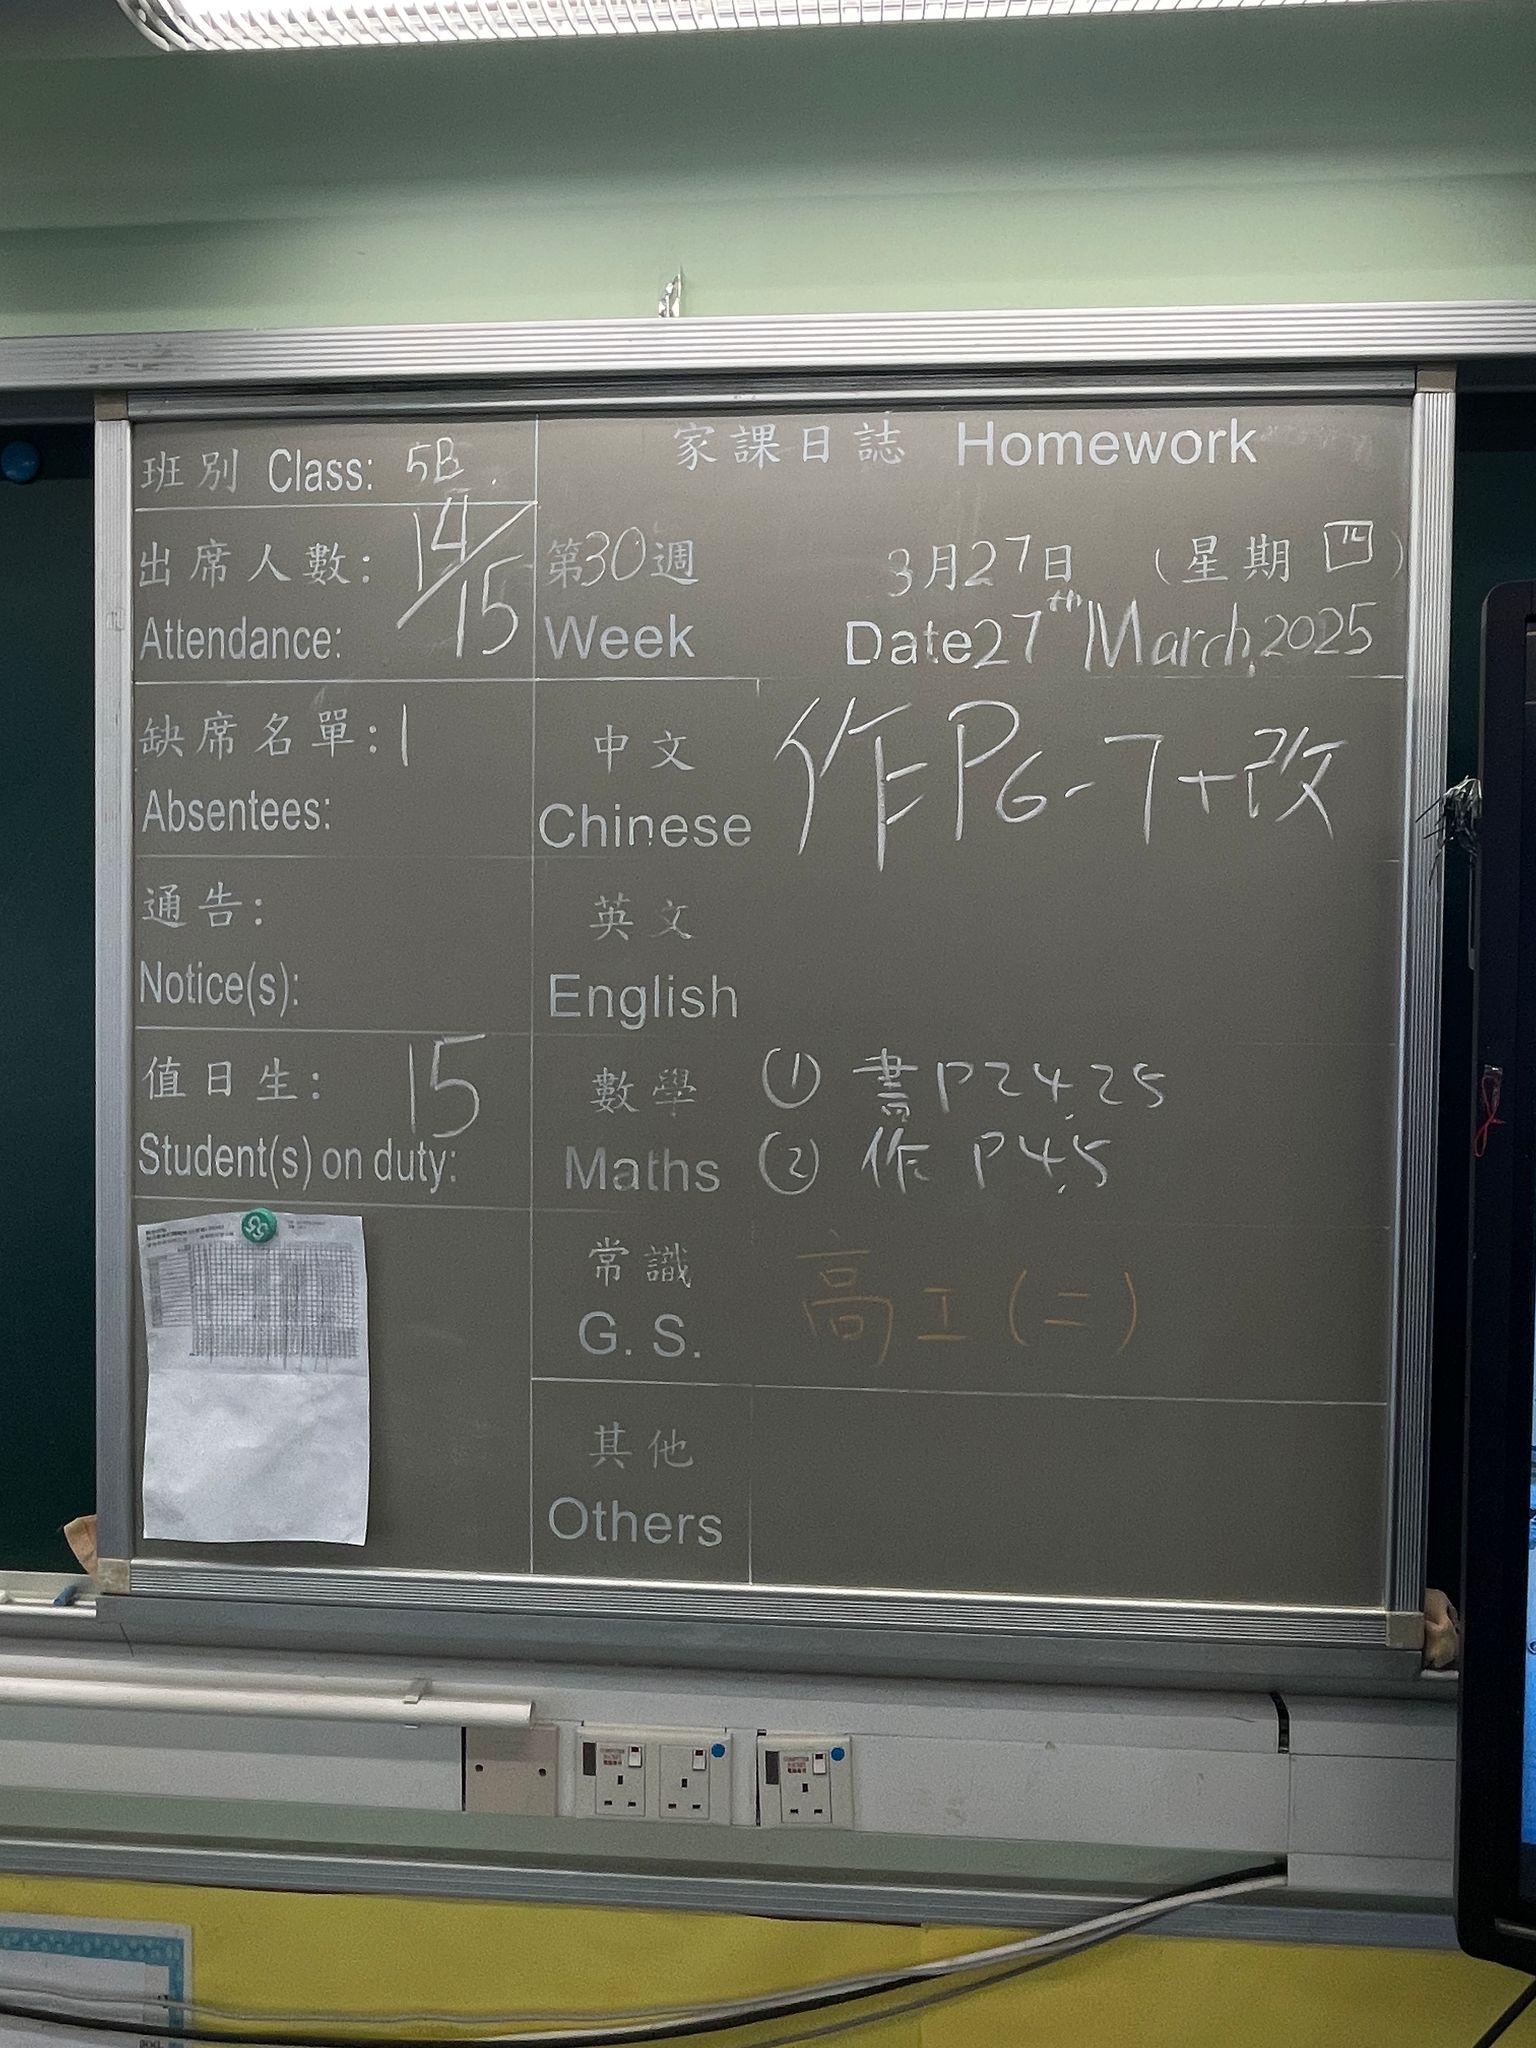 班別 Class: 5B
出席人數: 14/15
Attendance:
缺席名單: 1
Absentees:
通告:
Notice(s):
值日生: 15
Student(s) on duty:
家課日誌 Homework
第30週 3月27日 (星期四)
Week Date 27th March, 2025
中文 作P6-7+改
Chinese
英文
English
數學 ① 書P24,25
Maths ② 作 P4,5
常識 高工(二)
G. S.
其他
Others